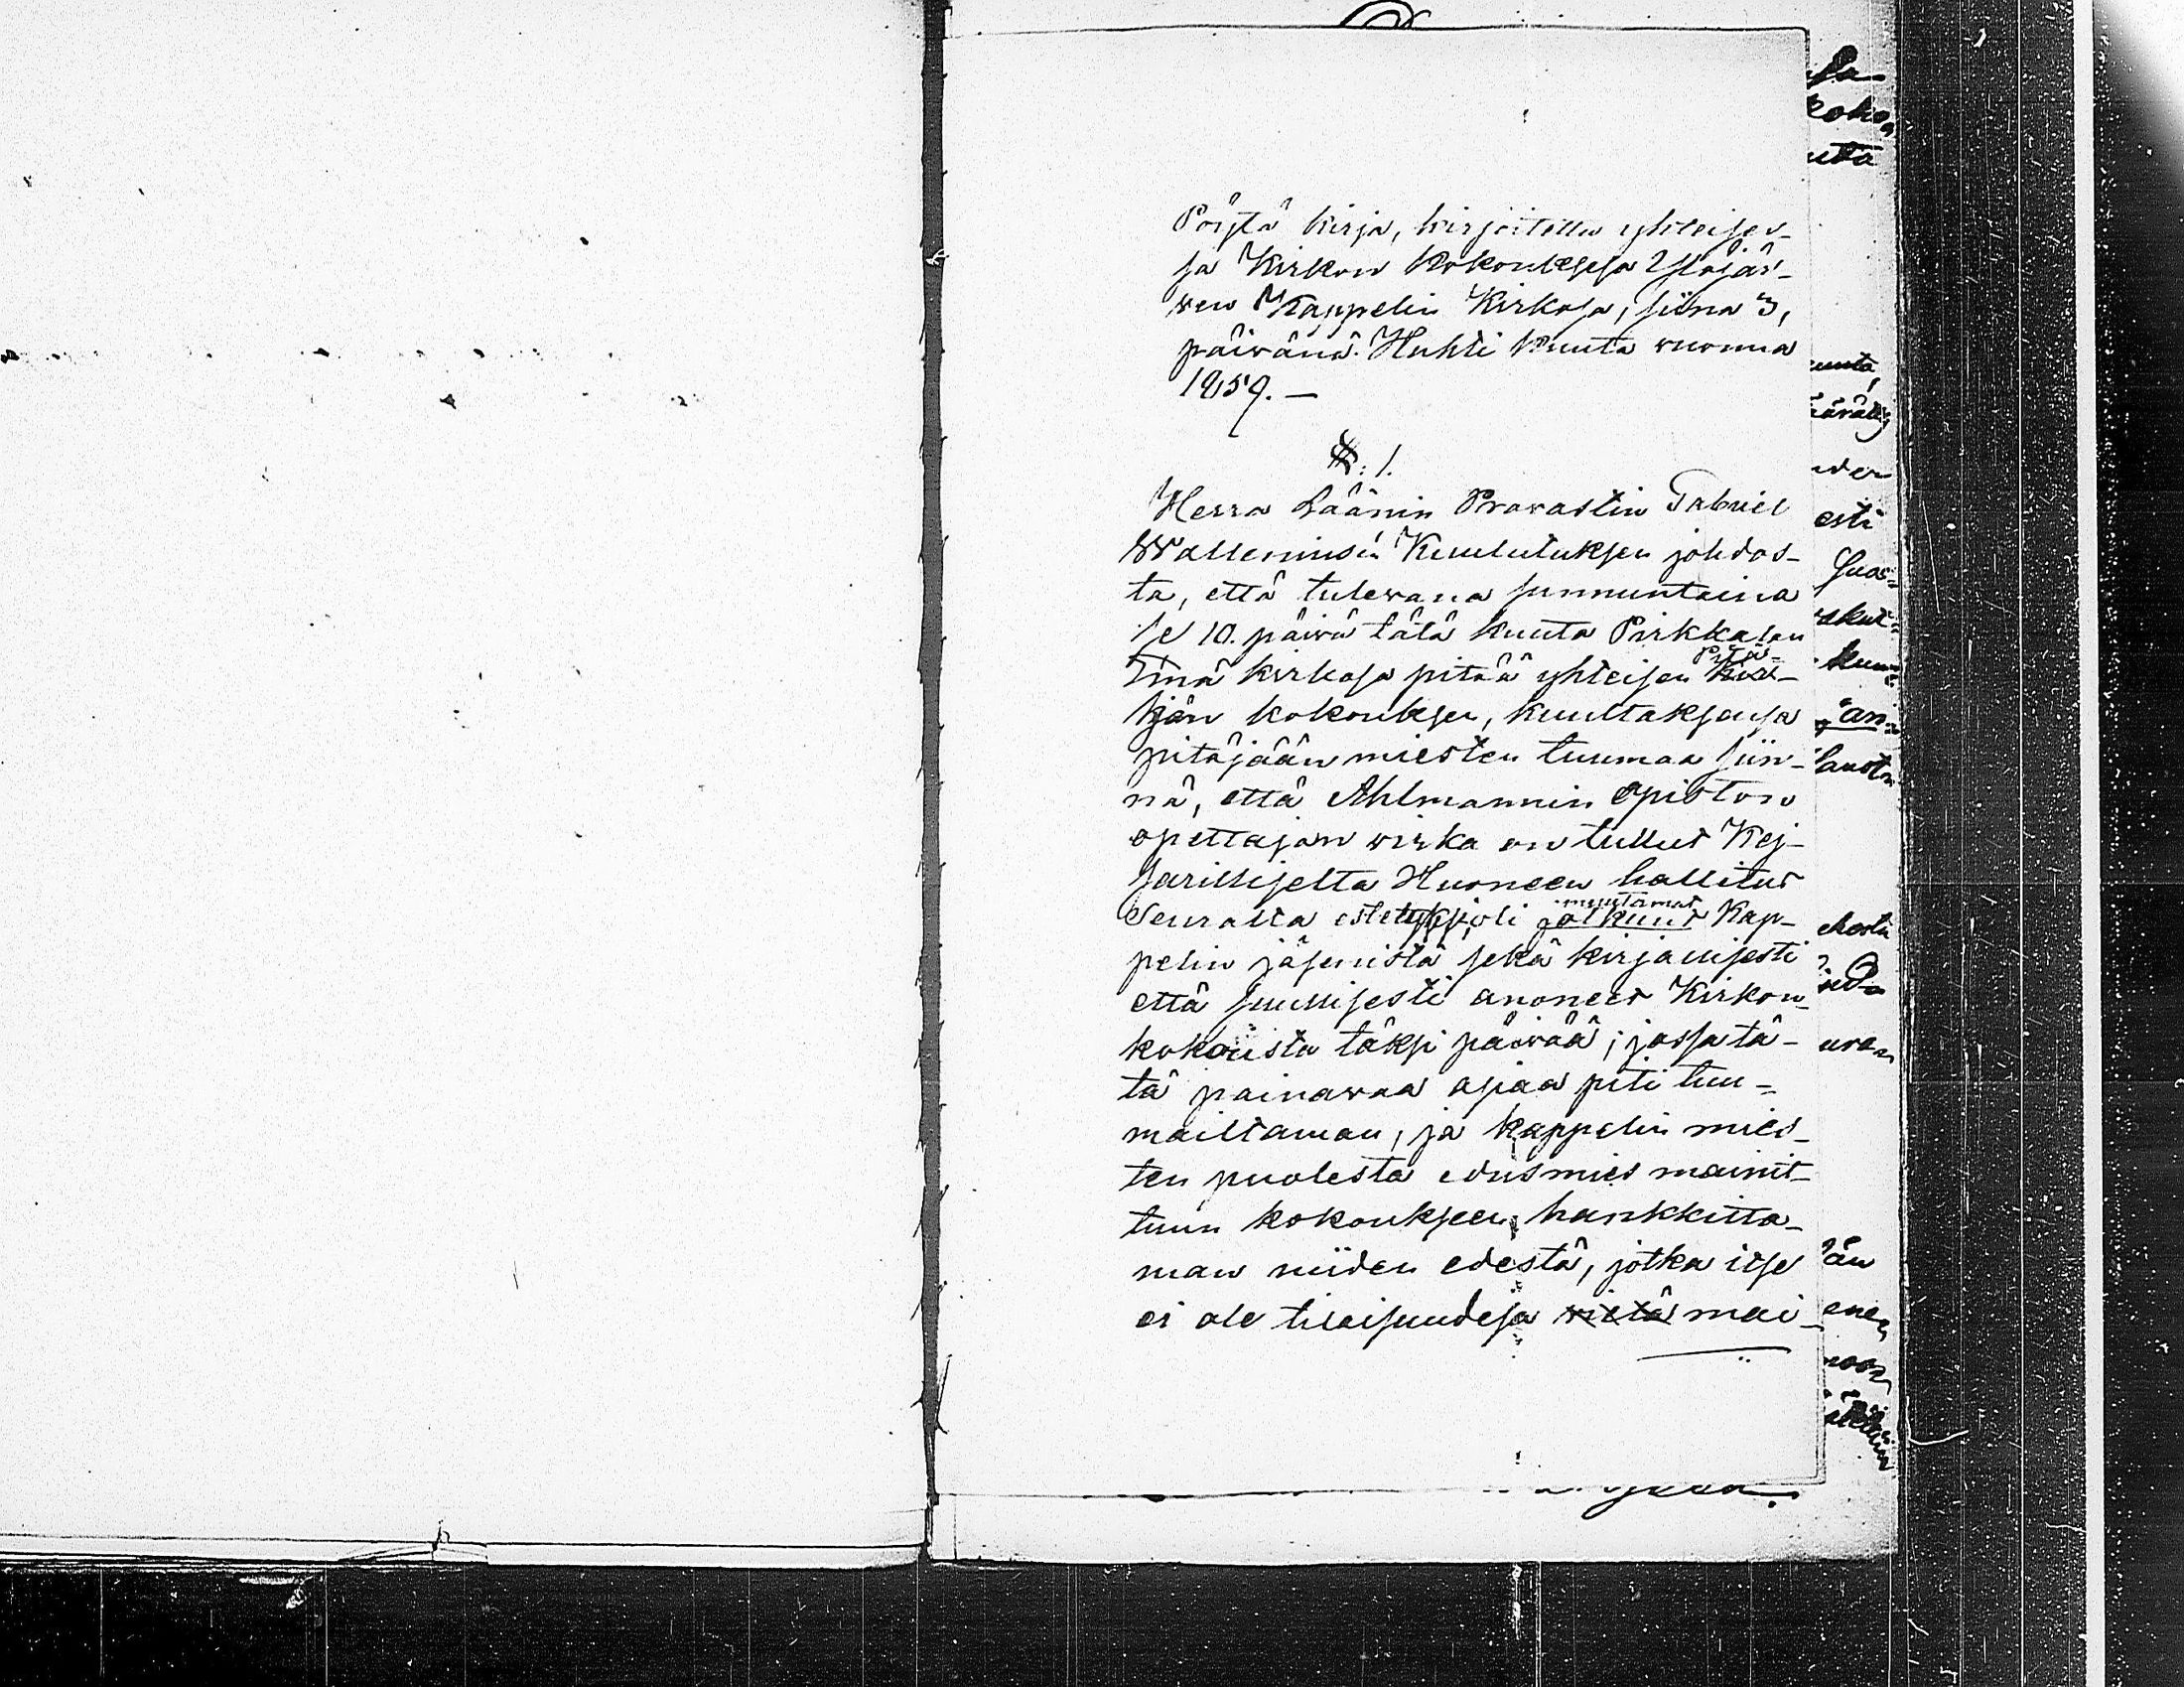 Pöytä kirja, kirjoitettu yhteises-
sa Kirkon kokouksesa Ylöjär-
wen Kappelin Kirkosa, siina 3,
päivänä. Huhti kuuta vuonna
1859. —
§: 1.
Herra Läänin Prowastin Gabriel
Walleniusen Kuulutuksen johdos-
ta, että tulewana sunnuntaina
se 10. päiwä tätä kuuta Pirkkalan
Emä kirkosa pitää yhteisen Pitä-
jän kokouksen, kuultaksensa
pitäjään miesten tuumaa siin-
nä, että Ahlmannin opiston
opettajan wirka on tullut Kej-
sarilliselta Huoneen hallitus
Seuralta estetyksi, oli muutamat Kap-
pelin jäsenistä sekä kirjallisesti
että suullisesti anoneet Kirkon-
kokousta täksi päivää; jossa tä-
tä painawaa asiaa piti tuu-
mailtaman, ja kappelin mies-
ten puolesta edusmies mainit-
tuun kokoukseen hankkitta-
man niiden edestä, jotka itse
ei ole tilaisuudesa mai-